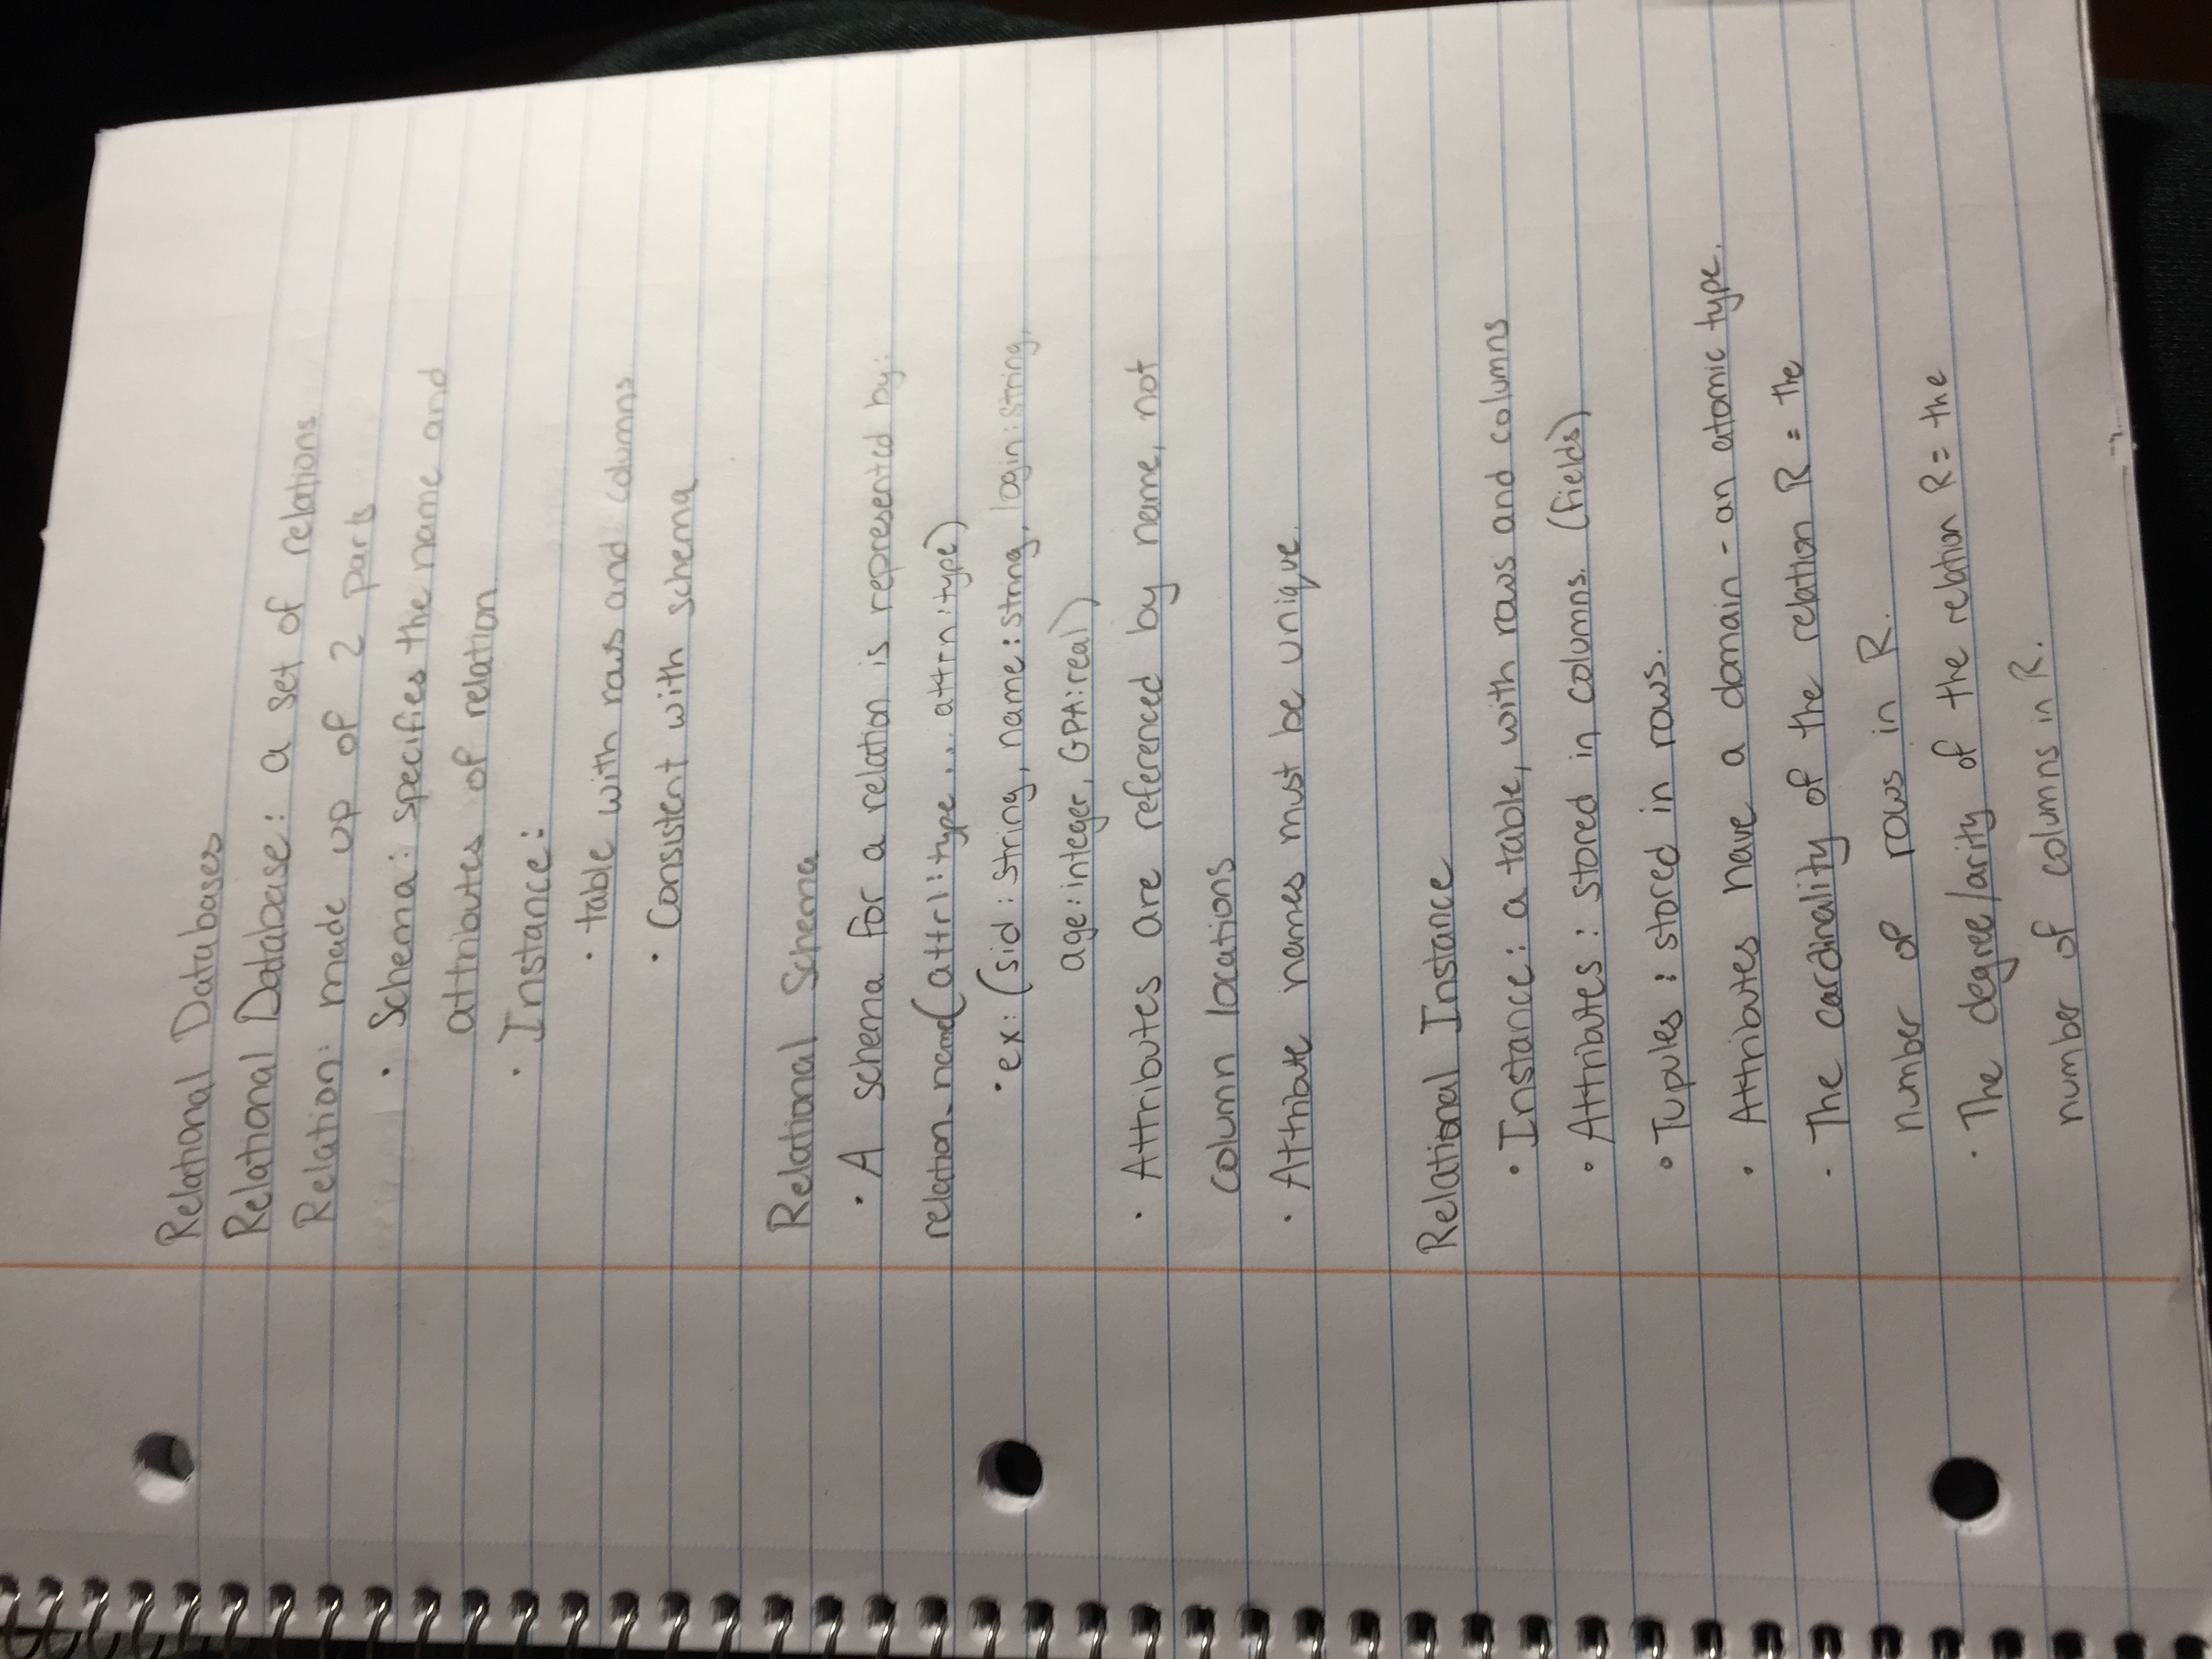 Relational Databases
Relational Database: a set of relations
Relation: made up of 2 parts
· Schema: specifies the name and
attributes of relation
· Instance:
· table with rows and columns
· Consistent with schema
Relational Schema
· A schema for a relation is represented by:
relation_name(attr1:type ... attrn:type)
· ex: (sid: string, name: string, login: string,
age: integer, GPA: real)
· Attributes are referenced by name, not
column locations
· Attribute names must be unique.
Relational Instance
· Instance: a table, with rows and columns
· Attributes: stored in columns. (fields)
· Tupules: stored in rows.
· Attributes have a domain - an atomic type.
· The cardinality of the relation R = the
number of rows in R.
· The degree/arity of the relation R = the
number of columns in R.